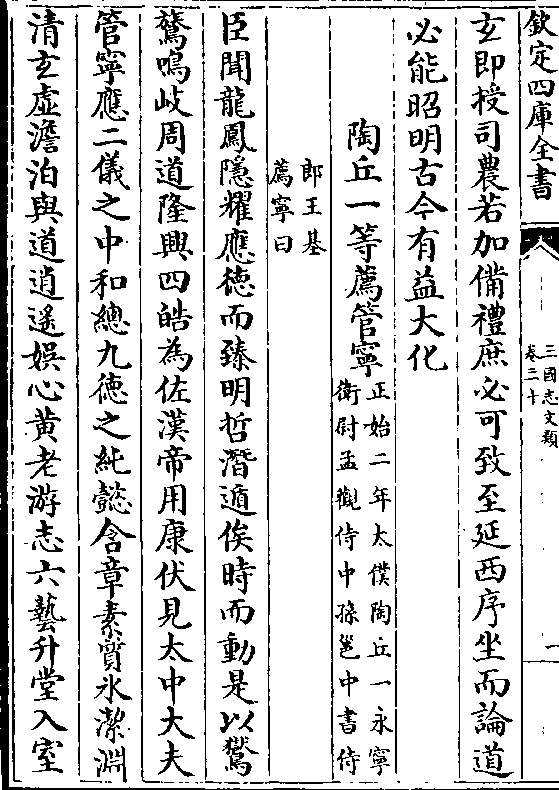 欽定四庫全書
三國志文類
卷三十
一
玄即授司農若加備禮庶必可致至延西序坐而論道
必能昭明古今有益大化
陶丘一等薦管寧
正始二年太僕陶丘一永寧
衛尉孟觀侍中孫邕中書侍
郎王基
薦寧曰
臣聞龍鳳隱耀應德而臻明哲潛遁俟時而動是以鸑
鷟鳴岐周道隆興四皓為佐漢帝用康伏見太中大夫
管寧應二儀之中和總九德之純懿含章素質冰潔淵
清玄虛澹泊與道逍遙娛心黃老游志六藝升堂入室